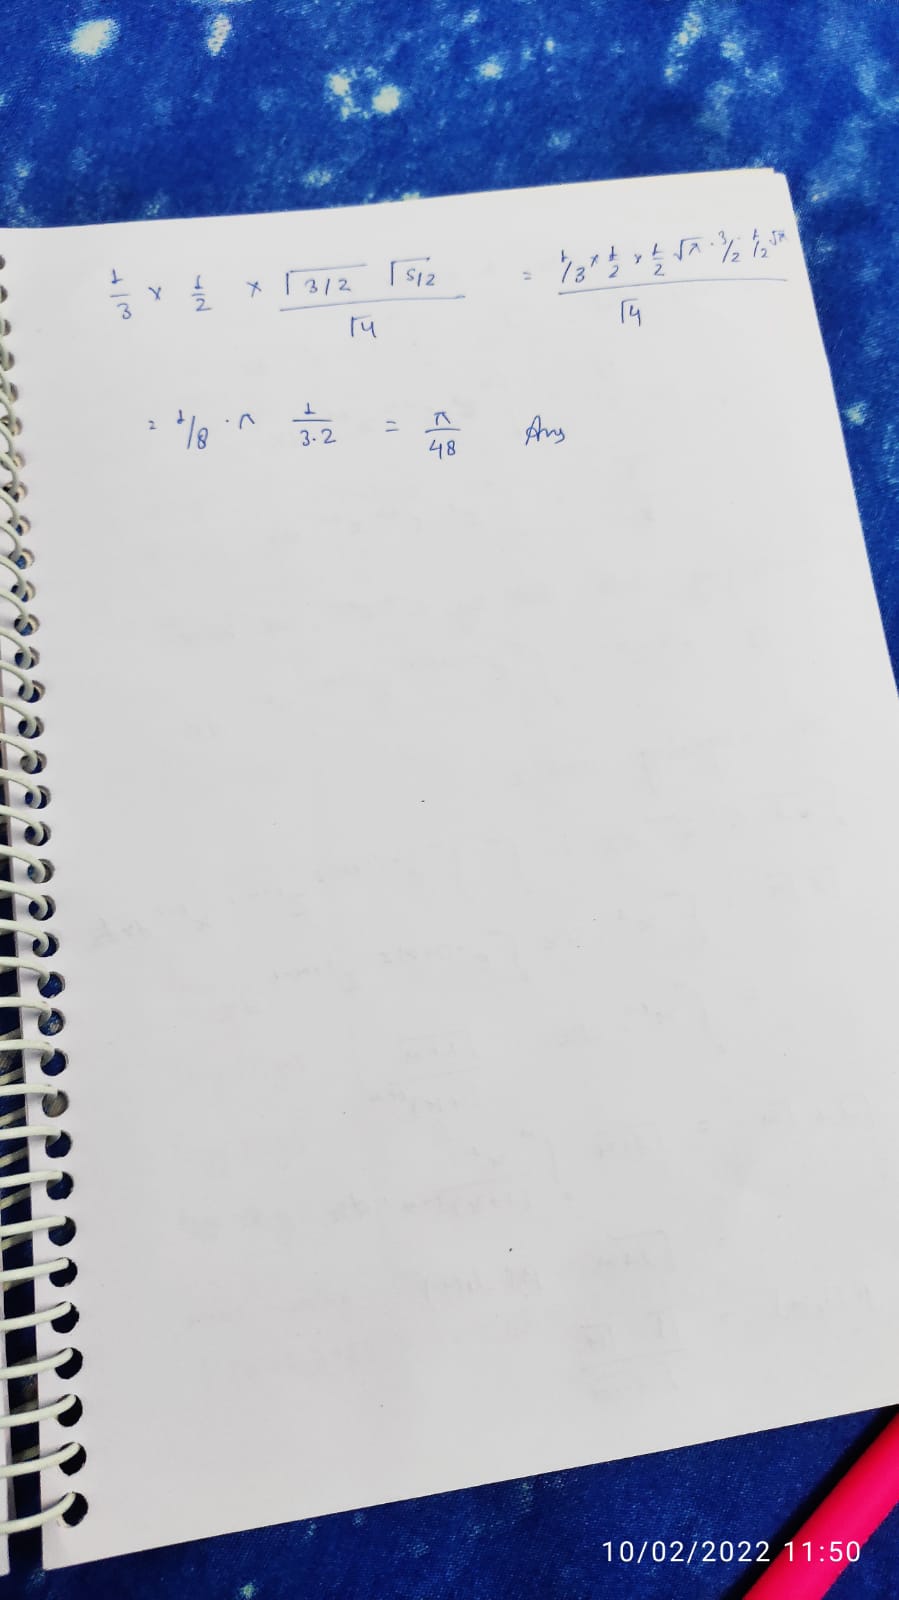 1/3 × 1/2 × Γ3/2 Γ5/2 / Γ4 = 1/3 × 1/2 × 1/2 √π · 3/2 · 1/2 √π / Γ4
= 1/8 · π 1/3.2 = π/48 Ans
10/02/2022 11:50